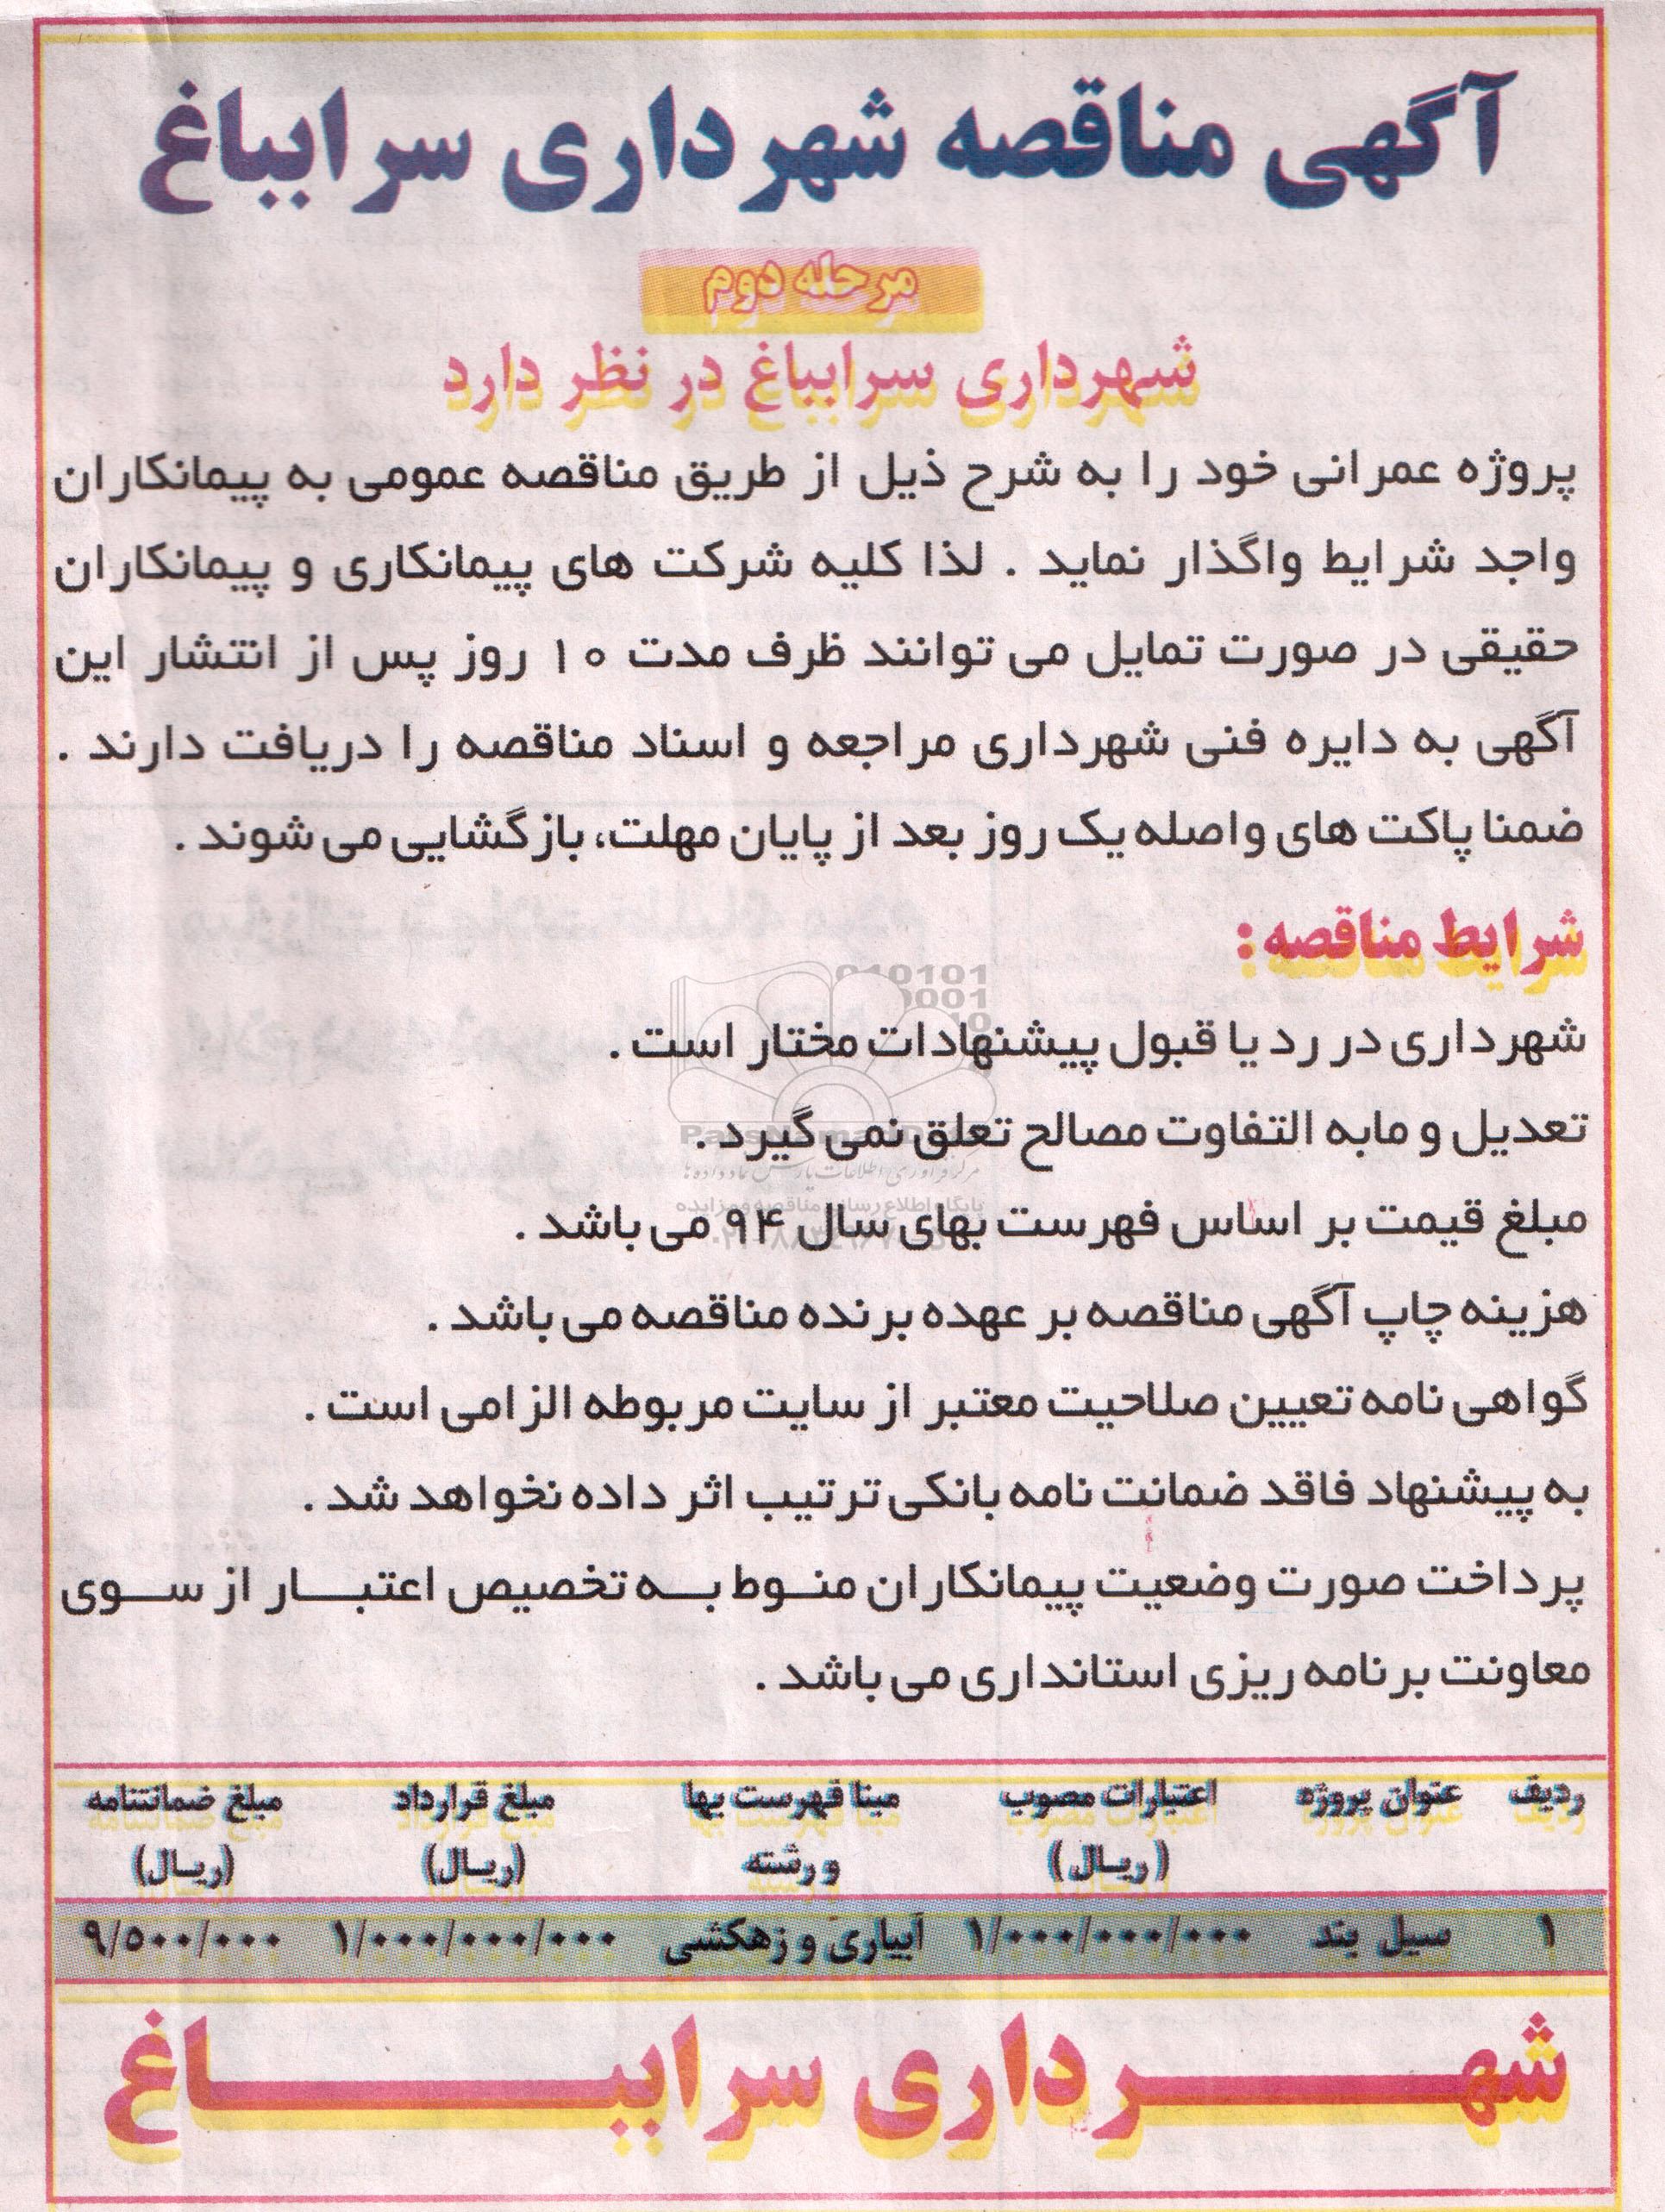 آگهی مناقصه شهرداری سرابباغ
مرحله دوم
شهرداری سرابباغ در نظر دارد
پروژه عمرانی خود را به شرح ذیل از طریق مناقصه عمومی به پیمانکاران
واجد شرایط واگذار نماید . لذا کلیه شرکت های پیمانکاری و پیمانکاران
حقیقی در صورت تمایل می توانند ظرف مدت ۱۰ روز پس از انتشار این
آگهی به دایره فنی شهرداری مراجعه و اسناد مناقصه را دریافت دارند .
ضمنا پاکت های واصله یک روز بعد از پایان مهلت، بازگشایی می شوند .
شرایط مناقصه :
شهرداری در رد یا قبول پیشنهادات مختار است .
تعدیل و مابه التفاوت مصالح تعلق نمی گیرد .
مبلغ قیمت بر اساس فهرست بهای سال ۹۴ می باشد .
هزینه چاپ آگهی مناقصه بر عهده برنده مناقصه می باشد .
گواهی نامه تعیین صلاحیت معتبر از سایت مربوطه الزامی است .
به پیشنهاد فاقد ضمانت نامه بانکی ترتیب اثر داده نخواهد شد .
پرداخت صورت وضعیت پیمانکاران منوط به تخصیص اعتبار از سوی
معاونت برنامه ریزی استانداری می باشد .
ردیف عنوان پروژه اعتبارات مصوب مبنا فهرست بها مبلغ قرارداد مبلغ ضمانتنامه
(ریال) و رشته (ریال) (ریال)
۱ سیل بند ۱/۰۰۰/۰۰۰/۰۰۰ آبیاری و زهکشی ۱/۰۰۰/۰۰۰/۰۰۰ ۹/۵۰۰/۰۰۰
شهرداری سرابباغ